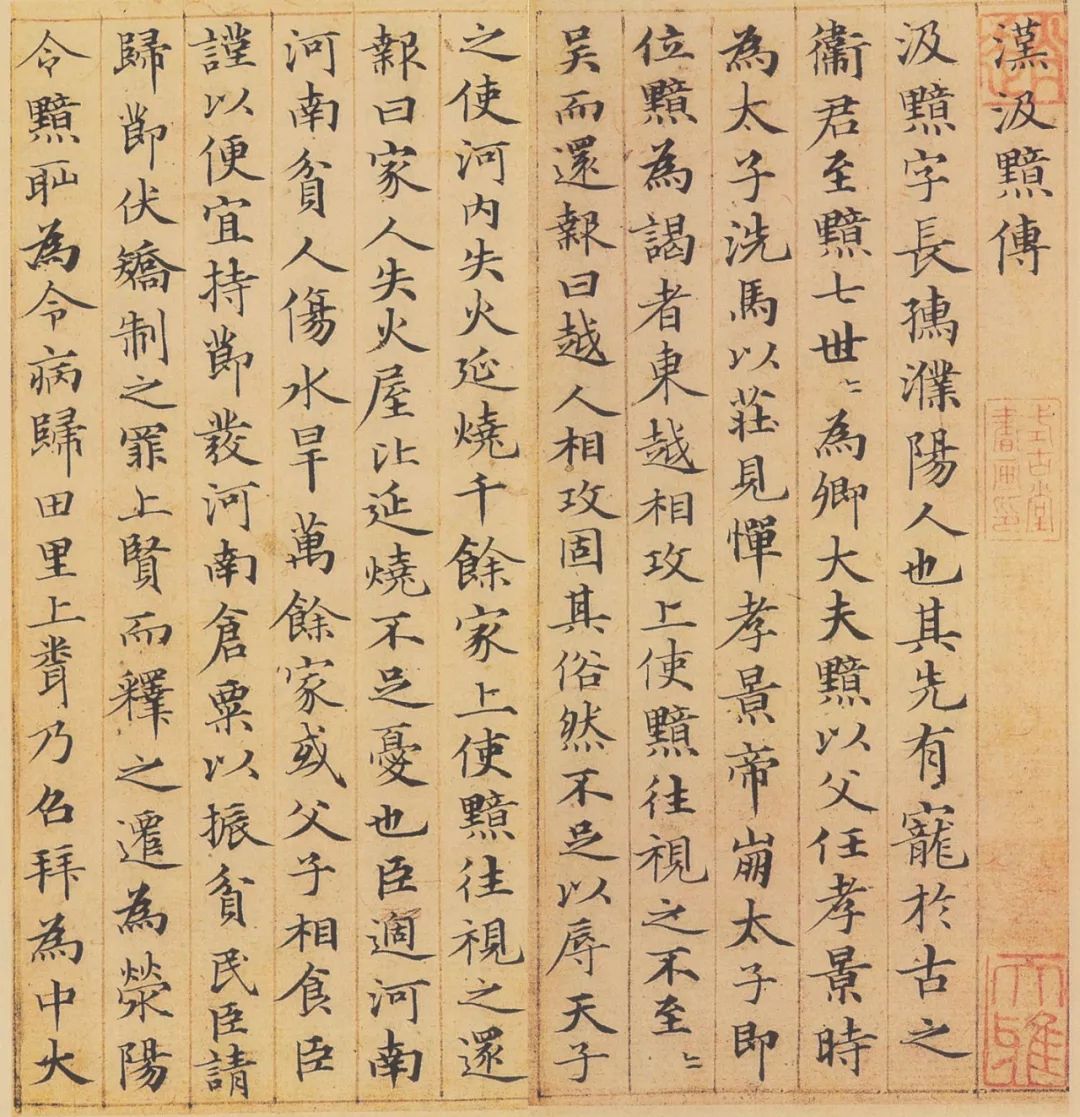 漢汲黯傳
汲黯字長孺濮陽人也其先有寵於古之
衞君至黯七世〻為卿大夫黯以父任孝景時
為太子洗馬以莊見憚孝景帝崩太子即
位黯為謁者東越相攻上使黯往視之不至〻
吳而還報曰越人相攻固其俗然不足以辱天子
之使河內失火延燒千餘家上使黯往視之還
報曰家人失火屋比延燒不足憂也臣過河南
河南貧人傷水旱萬餘家或父子相食臣
謹以便宜持節發河南倉粟以振貧民臣請
歸節伏矯制之罪上賢而釋之遷為滎陽
令黯恥為令病歸田里上聞乃召拜為中大
式古堂
書畫印
大雅